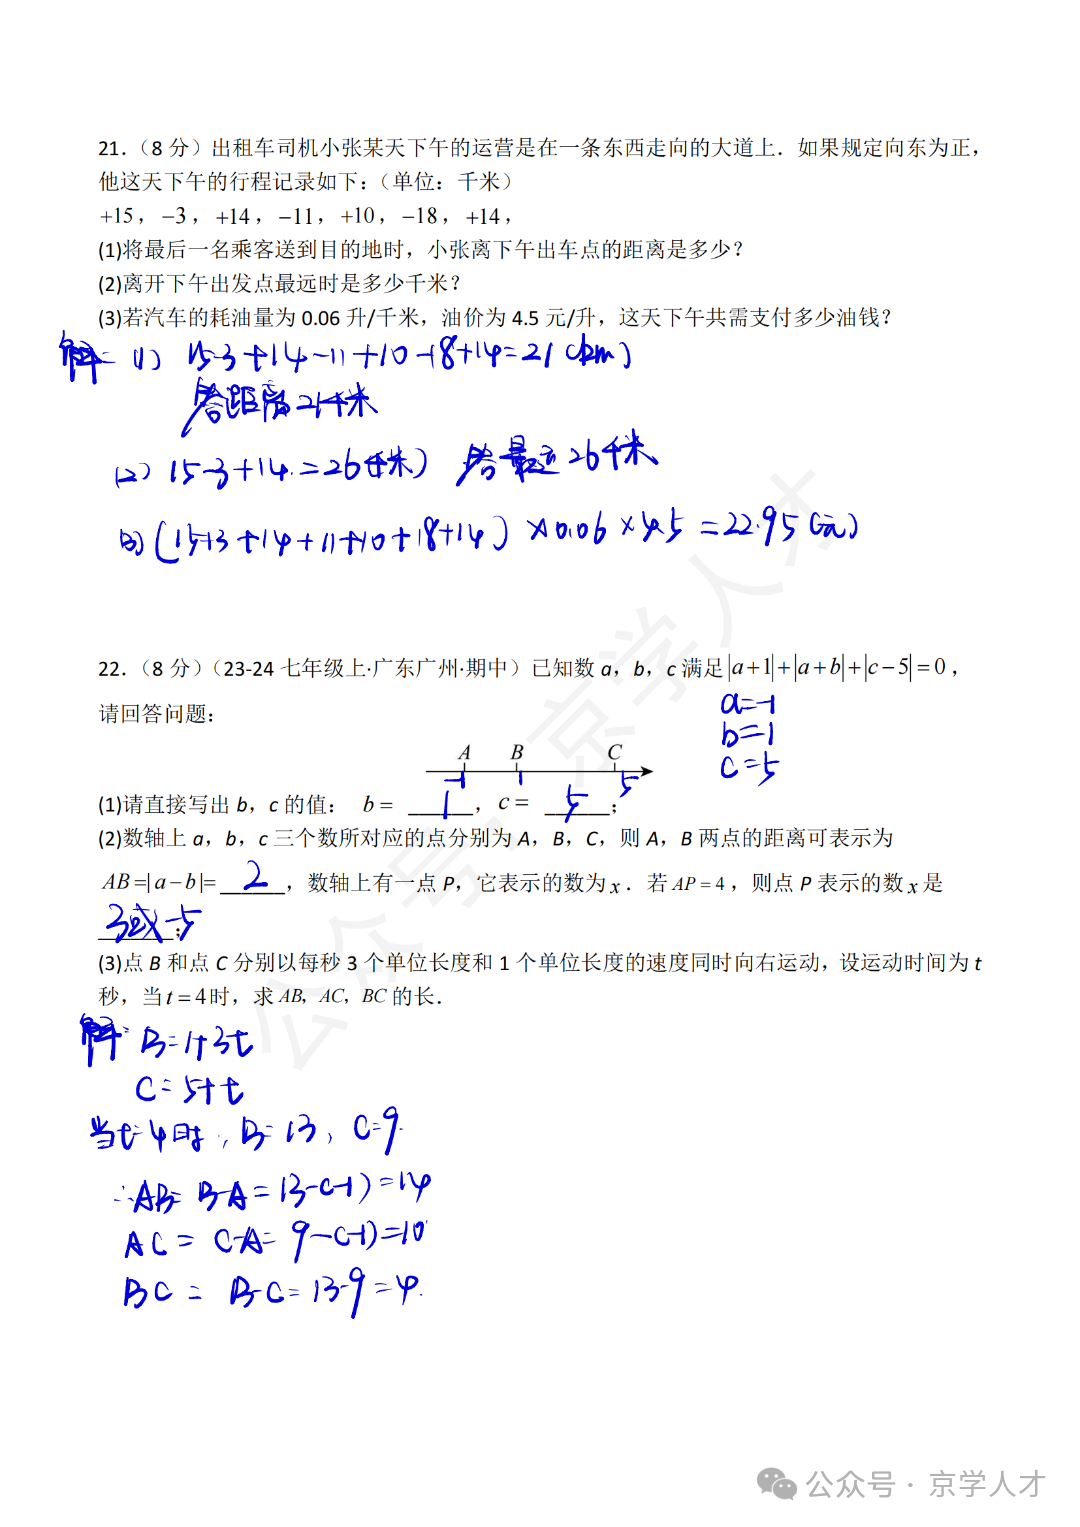 21.（8 分）出租车司机小张某天下午的运营是在一条东西走向的大道上．如果规定向东为正，
他这天下午的行程记录如下：（单位：千米）
+15，−3，+14，−11，+10，−18，+14，
(1)将最后一名乘客送到目的地时，小张离下午出车点的距离是多少？
(2)离开下午出发点最远时是多少千米？
(3)若汽车的耗油量为 0.06 升/千米，油价为 4.5 元/升，这天下午共需支付多少油钱？
解：(1) 15-3+14-11+10-18+14=21(km)
答距离21千米
(2) 15-3+14=26(千米) 答最远26千米
(3) (15+3+14+11+10+18+14)×0.06×4.5=22.95(元)
22.（8 分）（23-24 七年级上·广东广州·期中）已知数 a，b，c 满足|a+1|+|a+b|+|c−5|=0，
请回答问题：
a=-1
b=1
c=5
A B C
-1 1 5
(1)请直接写出 b，c 的值： b= 1，c= 5；
(2)数轴上 a，b，c 三个数所对应的点分别为 A，B，C，则 A，B 两点的距离可表示为
AB=|a−b|= 2，数轴上有一点 P，它表示的数为x．若 AP=4，则点 P 表示的数x是
3或-5；
(3)点 B 和点 C 分别以每秒 3 个单位长度和 1 个单位长度的速度同时向右运动，设运动时间为 t
秒，当t=4时，求 AB，AC，BC 的长．
解：B=1+3t
C=5+t
当t=4时，B=13，C=9.
∴AB=B-A=13-(-1)=14
AC=C-A=9-(-1)=10
BC=B-C=13-9=4.
公众号·京学人才
公众号·京学人才